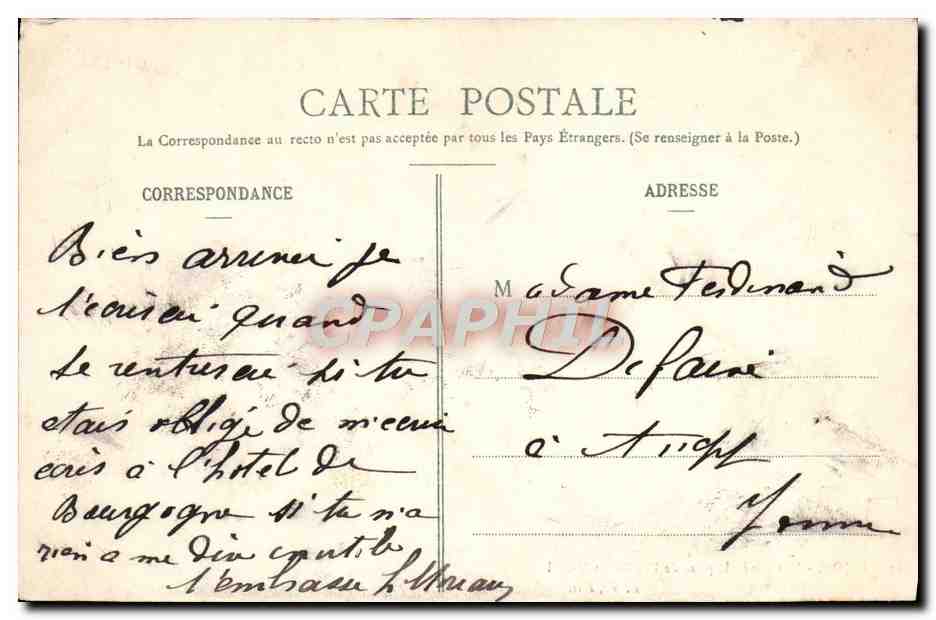 CARTE POSTALE
La Correspondance au recto n'est pas acceptée par tous les Pays Étrangers. (Se renseigner à la Poste.)
CORRESPONDANCE
Bien arriver je
quand
je rentrerai si tu
etais obligé de m'ecrir
ecris à l'hotel de
Bourgogne si tu n'a
rien a me dire inutile
t'embrasse
ADRESSE
Madame Ferdinand
à
Yonne
CPAPHIL